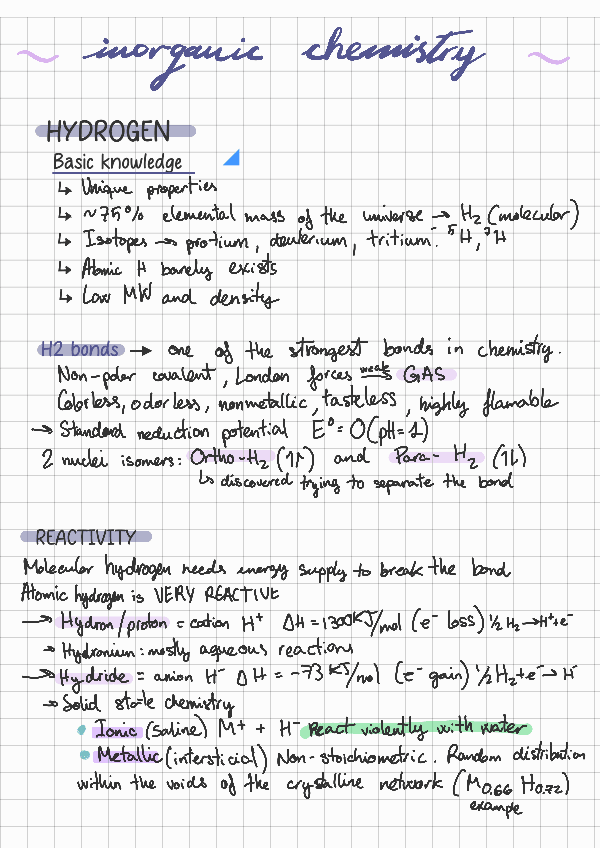 inorganic chemistry
HYDROGEN
Basic knowledge
↳ Unique properties
↳ ~75% elemental mass of the universe → H₂ (molecular)
↳ Isotopes → protium, deuterium, tritium. ⁵H, ⁷H
↳ Atomic H barely exists
↳ Low MW and density
H2 bonds → one of the strongest bonds in chemistry.
Non-polar covalent, London forces weak ⇒ GAS
Colorless, odorless, nonmetallic, tasteless, highly flamable
→ Standard reduction potential E⁰=0(pH=1)
2 nuclei isomers: Ortho-H₂ (1↿) and Para-H₂ (1⇂)
↳ discovered trying to separate the bond
REACTIVITY
Molecular hydrogen needs energy supply to break the bond
Atomic hydrogen is VERY REACTIVE
→ Hydron/proton = cation H⁺ ΔH=1300KJ/mol (e⁻ loss) ½ H₂→H⁺+e⁻
→ Hydronium: mostly aqueous reactions
→ Hydride = anion H⁻ ΔH = -73 KJ/mol (e⁻ gain) ½H₂+e⁻→ H⁻
→ Solid state chemistry
• Ionic (saline) M⁺ + H⁻ React violently with water
• Metallic (intersticial) Non-stoichiometric. Random distribution
within the voids of the crystalline network (M₀.₆₆ H₀.₇₂)
example